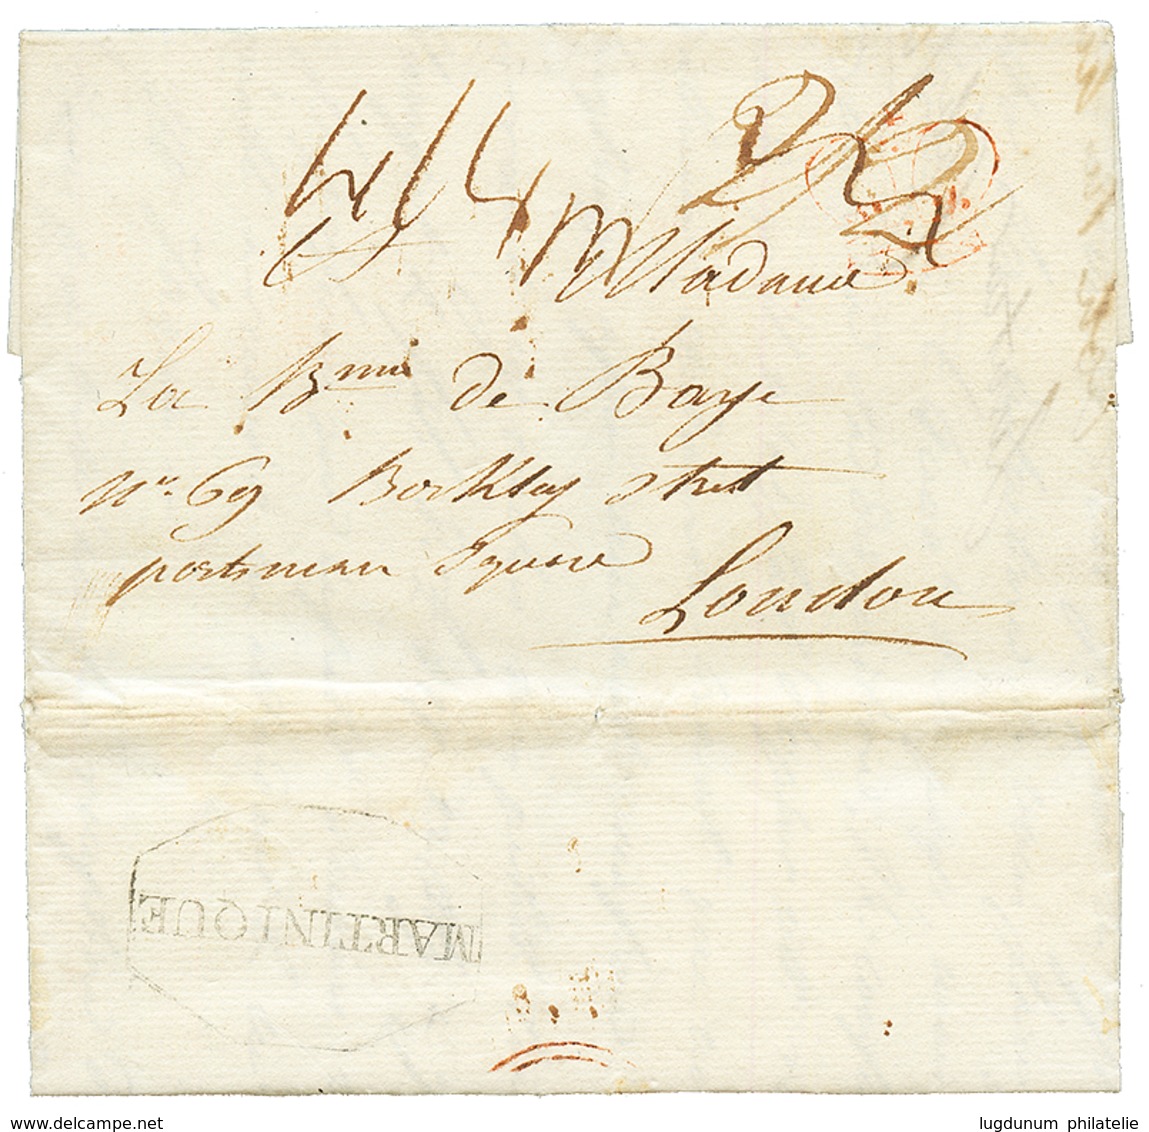 Madame
La Bnne de Baye
No 69 Berkley Stret
portman Square
London
MARTINIQUE
www.delcampe.net
lugdunum philatelie